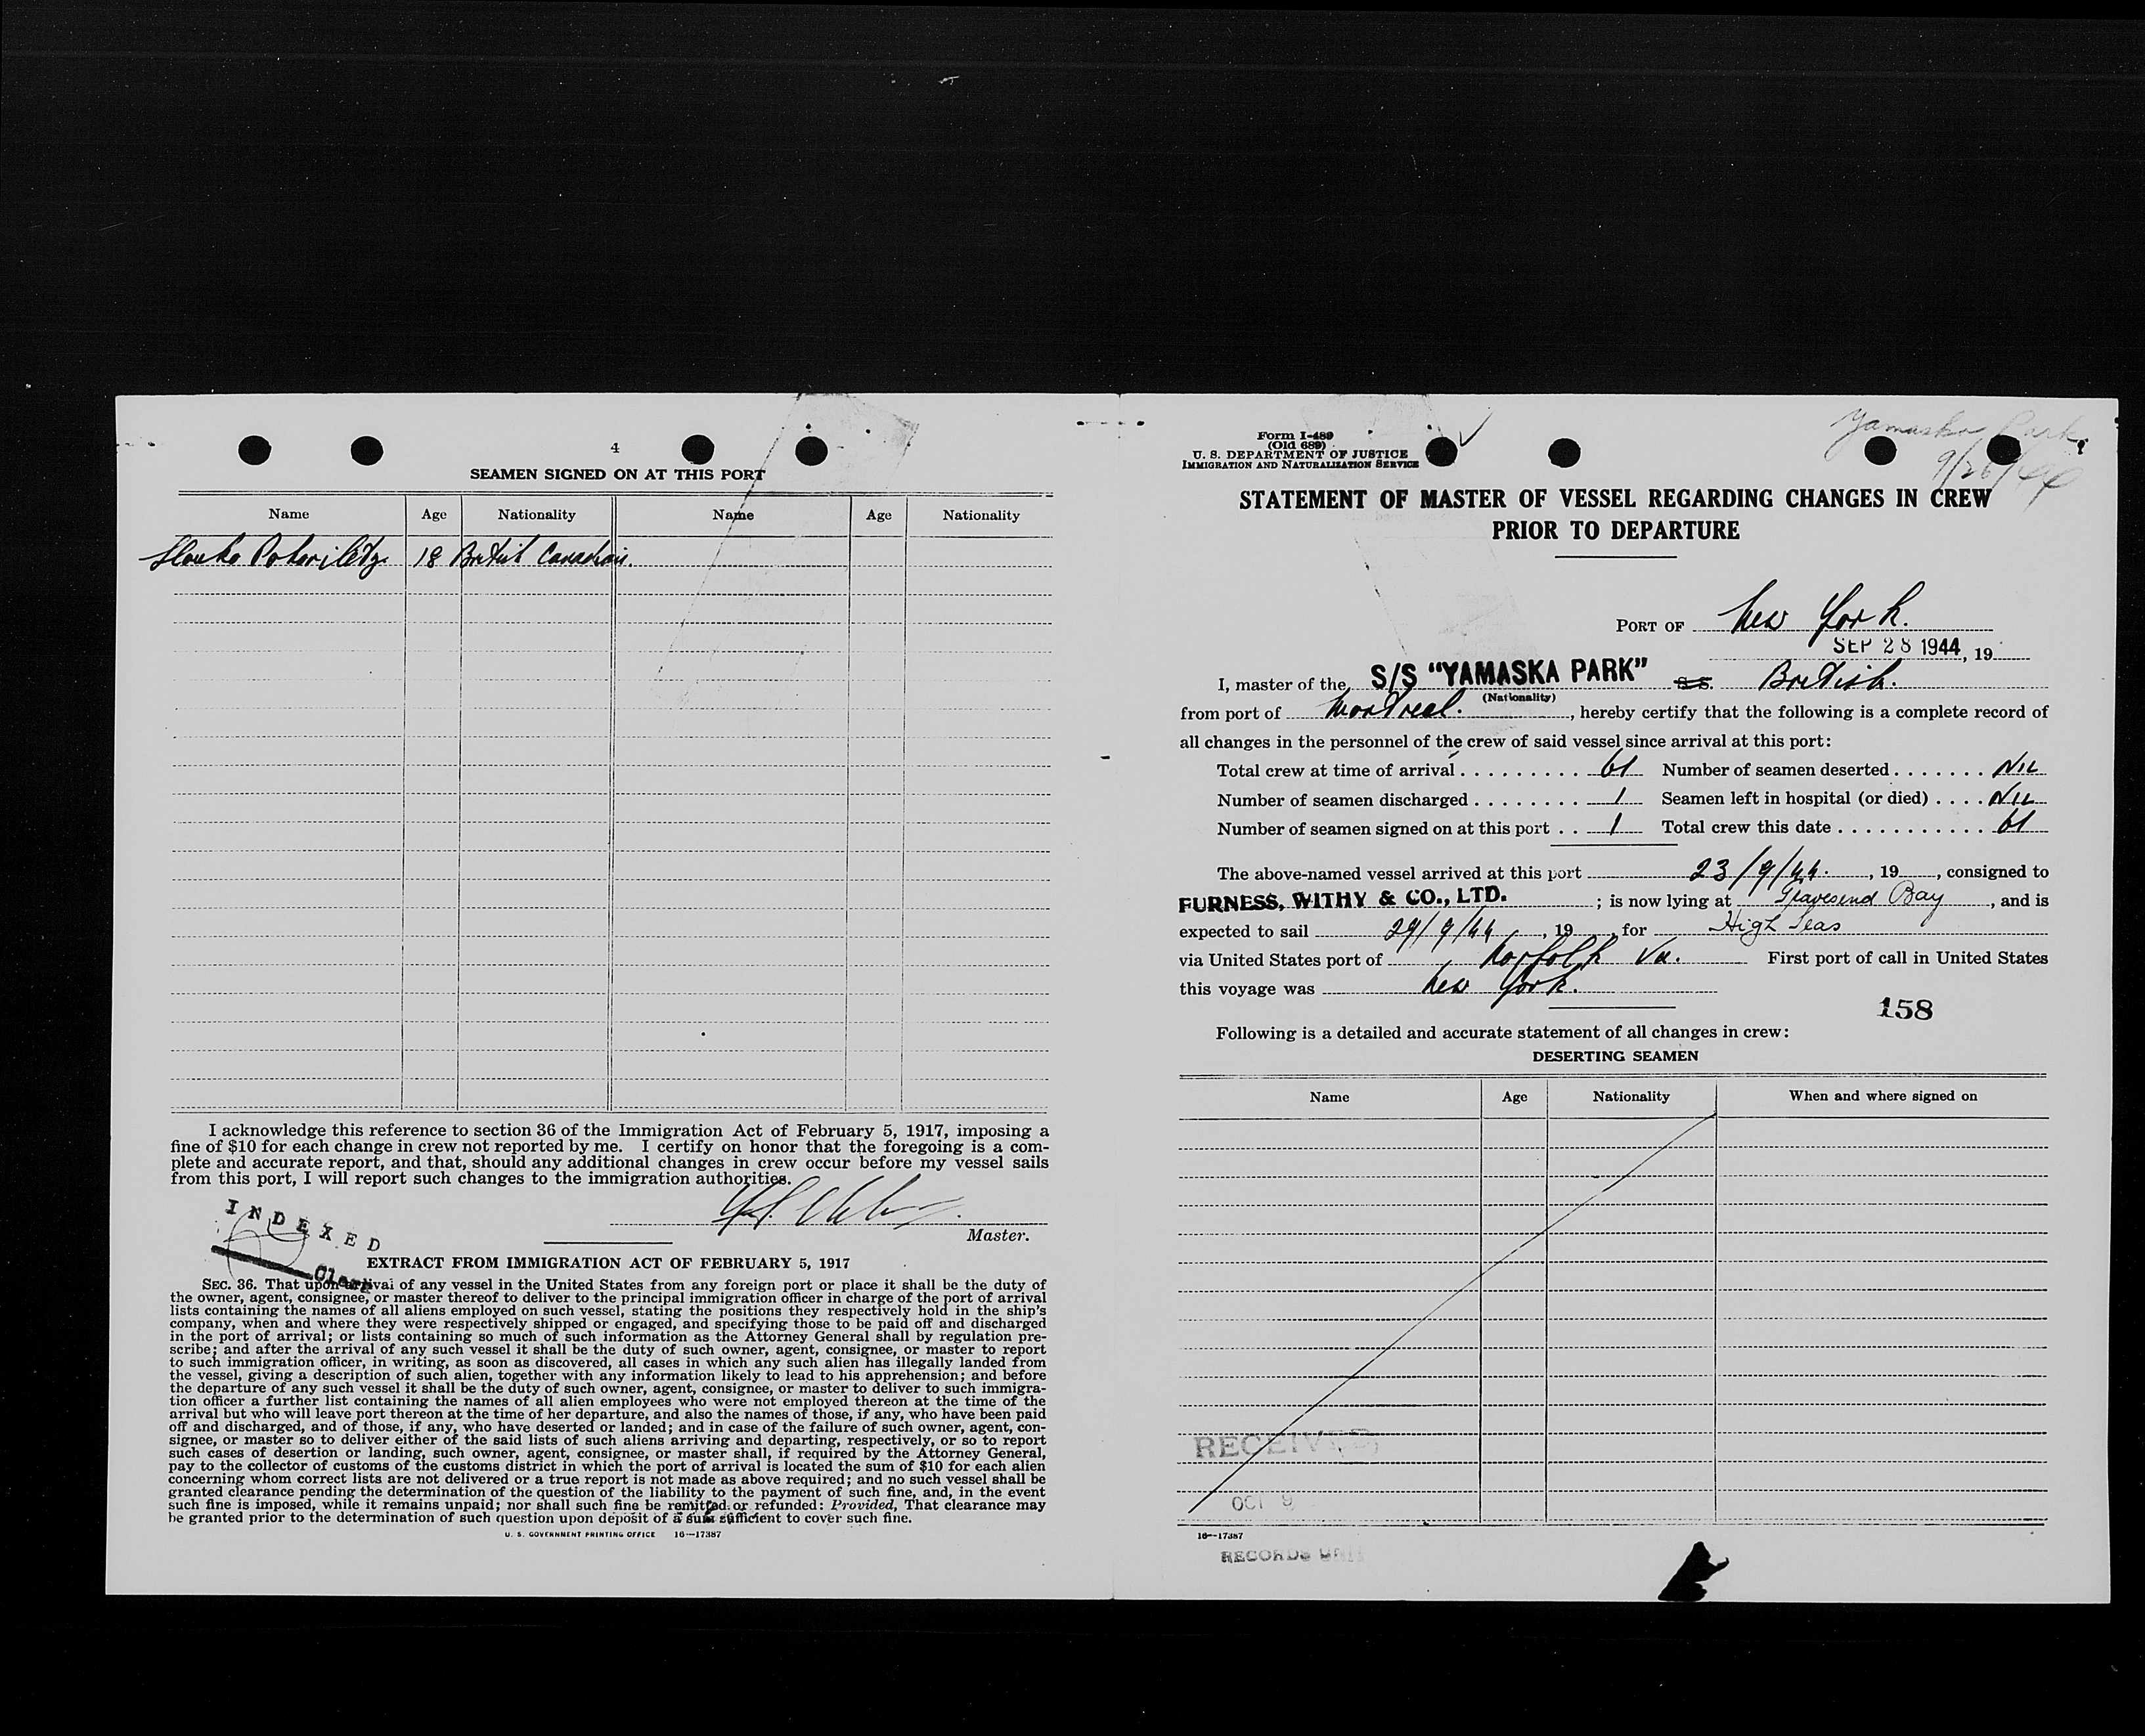 4
SEAMEN SIGNED ON AT THIS PORT
Name Age Nationality Name Age Nationality
18 British Canadian.
I acknowledge this reference to section 36 of the Immigration Act of February 5, 1917, imposing a
fine of $10 for each change in crew not reported by me. I certify on honor that the foregoing is a com-
plete and accurate report, and that, should any additional changes in crew occur before my vessel sails
from this port, I will report such changes to the immigration authorities.
Master.
INDEXED
Clerk
EXTRACT FROM IMMIGRATION ACT OF FEBRUARY 5, 1917
SEC. 36. That upon arrival of any vessel in the United States from any foreign port or place it shall be the duty of
the owner, agent, consignee, or master thereof to deliver to the principal immigration officer in charge of the port of arrival
lists containing the names of all aliens employed on such vessel, stating the positions they respectively hold in the ship's
company, when and where they were respectively shipped or engaged, and specifying those to be paid off and discharged
in the port of arrival; or lists containing so much of such information as the Attorney General shall by regulation pre-
scribe; and after the arrival of any such vessel it shall be the duty of such owner, agent, consignee, or master to report
to such immigration officer, in writing, as soon as discovered, all cases in which any such alien has illegally landed from
the vessel, giving a description of such alien, together with any information likely to lead to his apprehension; and before
the departure of any such vessel it shall be the duty of such owner, agent, consignee, or master to deliver to such immigra-
tion officer a further list containing the names of all alien employees who were not employed thereon at the time of the
arrival but who will leave port thereon at the time of her departure, and also the names of those, if any, who have been paid
off and discharged, and of those, if any, who have deserted or landed; and in case of the failure of such owner, agent, con-
signee, or master so to deliver either of the said lists of such aliens arriving and departing, respectively, or so to report
such cases of desertion or landing, such owner, agent, consignee, or master shall, if required by the Attorney General,
pay to the collector of customs of the customs district in which the port of arrival is located the sum of $10 for each alien
concerning whom correct lists are not delivered or a true report is not made as above required; and no such vessel shall be
granted clearance pending the determination of the question of the liability to the payment of such fine, and, in the event
such fine is imposed, while it remains unpaid; nor shall such fine be remitted or refunded: Provided, That clearance may
be granted prior to the determination of such question upon deposit of a sum sufficient to cover such fine.
U. S. GOVERNMENT PRINTING OFFICE 16—17387
Form I-489
(Old 689)
U. S. DEPARTMENT OF JUSTICE
IMMIGRATION AND NATURALIZATION SERVICE
Yamaska Park
9/26/44
STATEMENT OF MASTER OF VESSEL REGARDING CHANGES IN CREW
PRIOR TO DEPARTURE
PORT OF New York.
SEP 28 1944, 19
I, master of the S/S "YAMASKA PARK" S.S. British.
(Nationality)
from port of Montreal. , hereby certify that the following is a complete record of
all changes in the personnel of the crew of said vessel since arrival at this port:
Total crew at time of arrival 61 Number of seamen deserted NIL
Number of seamen discharged 1 Seamen left in hospital (or died) NIL
Number of seamen signed on at this port 1 Total crew this date 61
The above-named vessel arrived at this port 23/9/44. , 19 , consigned to
FURNESS, WITHY & CO., LTD. ; is now lying at Gravesend Bay , and is
expected to sail 29/9/44 , 19 , for High Seas
via United States port of Norfolk Va. First port of call in United States
this voyage was New York.
158
Following is a detailed and accurate statement of all changes in crew:
DESERTING SEAMEN
Name Age Nationality When and where signed on
RECEIVED
OCT 9
16—17387
RECORDS UNIT